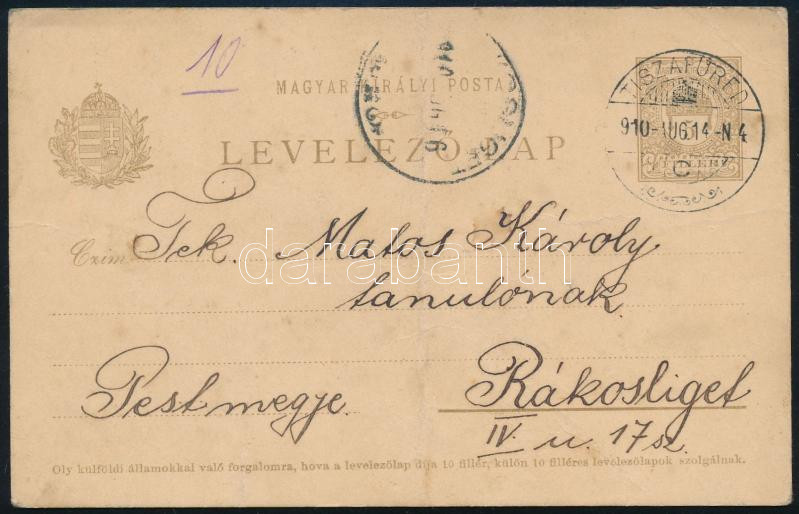 10
MAGYAR KIRÁLYI POSTA
LEVELEZŐ-LAP
TISZAFÜRED
910-AUG.14-N4
C
5
FILLÉR
Czim
Tek. Matos Károly
tanulónak
Pestmegye.
Rákosliget
IV. u. 17 sz.
Oly külföldi államokkal való forgalomra, hova a levelezőlap díja 10 fillér, külön 10 filléres levelezőlapok szolgálnak.
darabanth